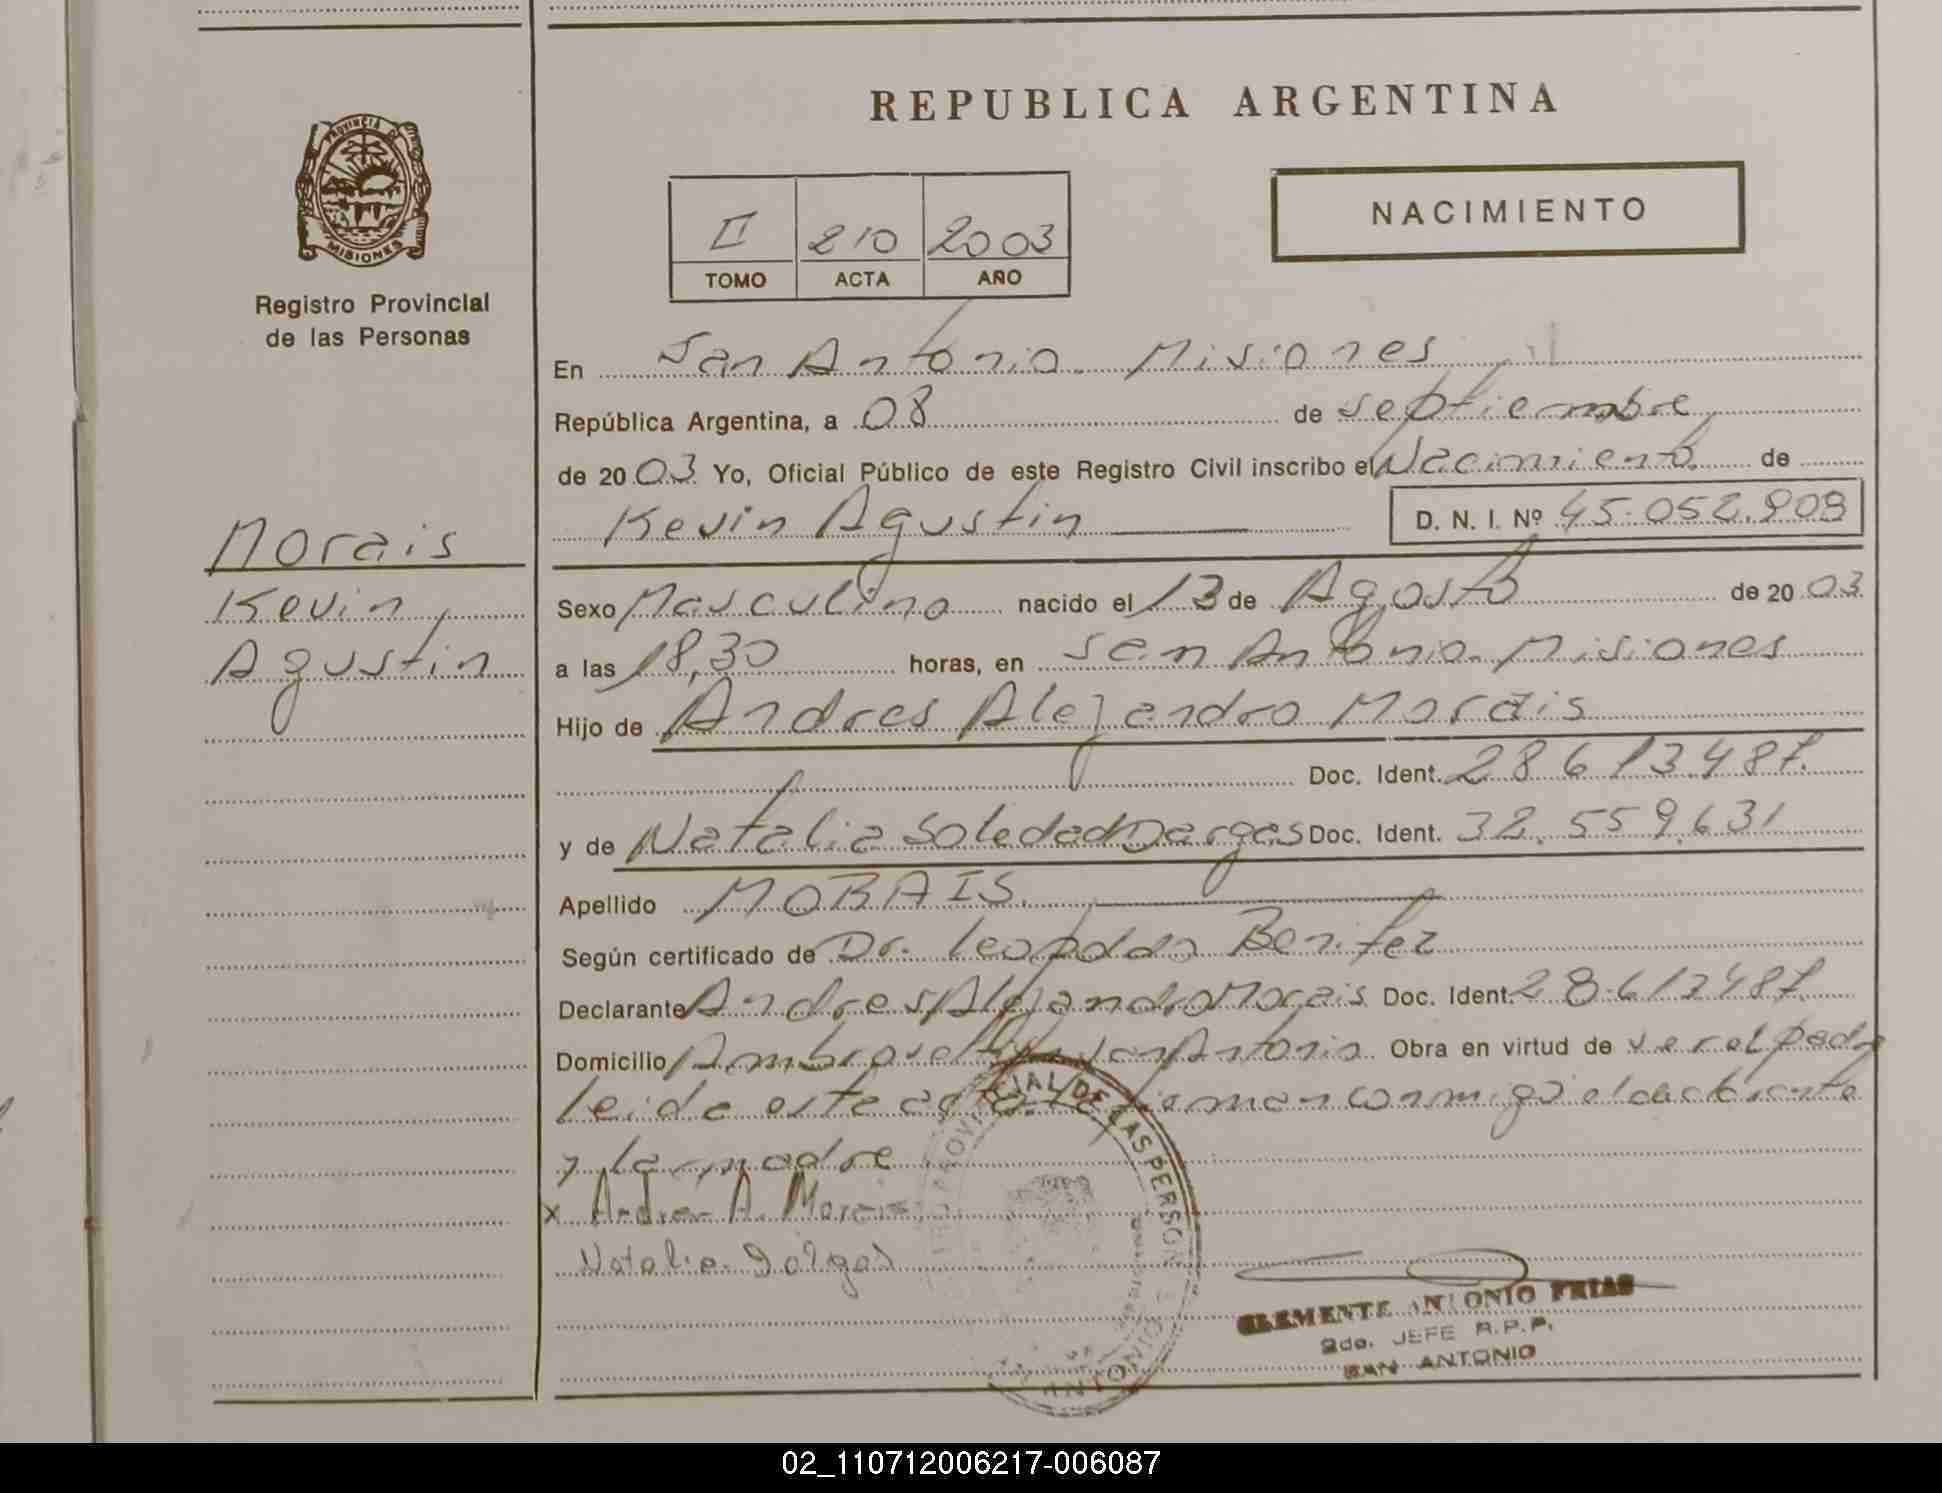 REPUBLICA ARGENTINA
PROVINCIA DE
MISIONES
Registro Provincial
de las Personas
NACIMIENTO
II 210 2003
TOMO ACTA AÑO
En San Antonio. Misiones
República Argentina, a 08 de septiembre
de 2003 Yo, Oficial Público de este Registro Civil inscribo el Nacimiento de
Kevin Agustin D. N. I. Nº 45.052.909
Morais
Kevin
Agustin
Sexo Masculino nacido el 13 de Agosto de 2003
a las 18,30 horas, en San Antonio. Misiones
Hijo de Andres Alejandro Morais
Doc. Ident. 28.613.487.
y de Natalia Soledad Dargas Doc. Ident. 32.559.631
Apellido MORAIS.
Según certificado de Dr. Leopoldo Benitez
Declarante Andres Alejandro Morais Doc. Ident. 28.613487.
Domicilio San Antonio. Obra en virtud de ser el padre
leida este acta la firman conmigo el declarante
y la madre
x Andres A. Morais
Natalia Dargas
CLEMENTE ANTONIO FRIAS
2do. JEFE R.P.P.
SAN ANTONIO
02_110712006217-006087